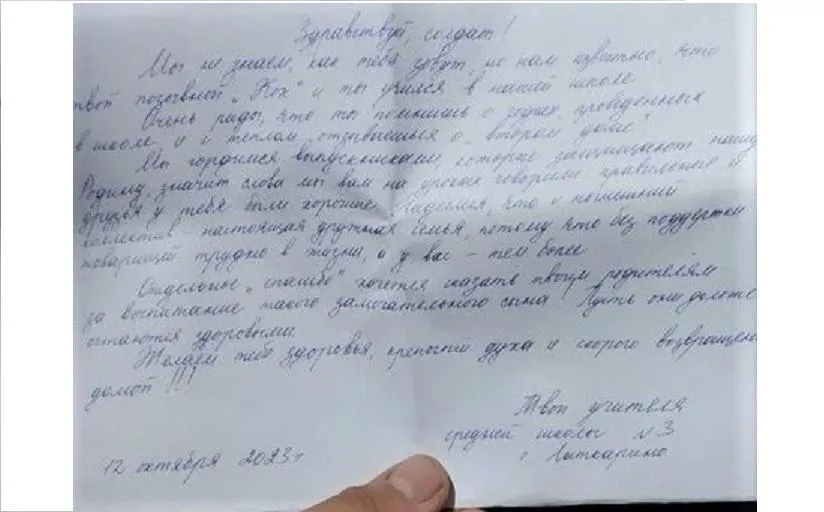 Здравствуй, солдат!
Мы не знаем, как тебя зовут, но нам известно, что
твой позывной „Кок" и ты учился в нашей школе
Очень рады, что ты помнишь о годах, проведенных
в школе и с теплом отзываешься о „втором доме"
Мы гордимся выпускниками, которые защищают нашу
Родину, значит слова мы вам на уроках говорили правильные и
друзья у тебя были хорошие. Надеемся, что и нынешний
коллектив настоящая дружная семья, потому что без поддержки
товарищей трудно в жизни, а у вас - тем более
Отдельное „спасибо" хочется сказать твоим родителям
за воспитание такого замечательного сына! Пусть они дольше
остаются здоровыми.
Желаем тебе здоровья, крепости духа и скорого возвращения
домой!!!
Твои учителя
средней школы №3
г Лыткарино
12 октября 2023 г